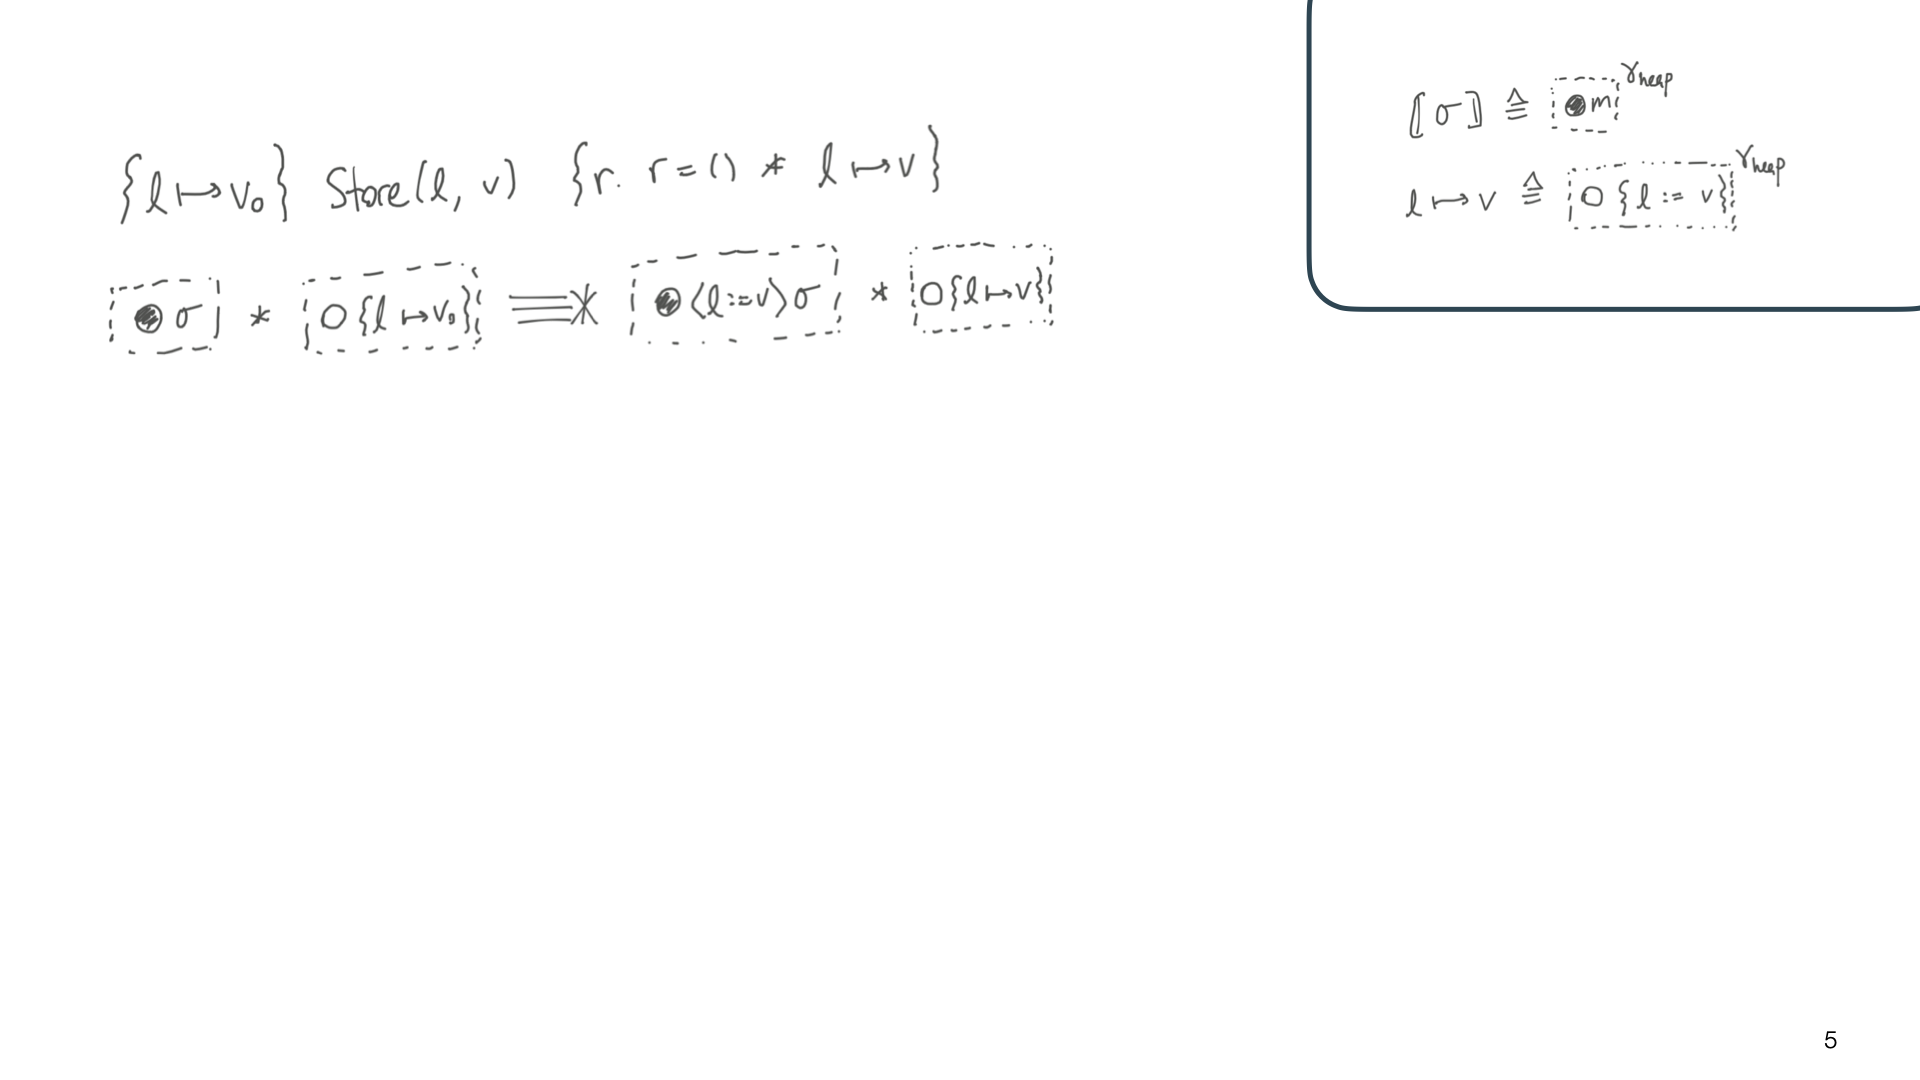 {l ↦ v₀} Store(l, v) {r. r = () * l ↦ v}
● σ * ○ {l ↦ v₀} ≡≡* ● ⟨l := v⟩ σ * ○ {l ↦ v}
⟦σ⟧ ≜ ● m γheap
l ↦ v ≜ ○ {l := v} γheap
5